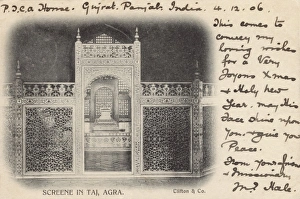 P.J.C.A House. Gujrat. Panjab. India. 4.12.06.
This comes to
convey my
loving wishes
for a Very
Joyous Xmas
& Holy new
Year. may His
Face shine upon
you & give you
Peace.
From your
& Missionary
M. J. Hale.
SCREENE IN TAJ, AGRA.
Clifton & Co.